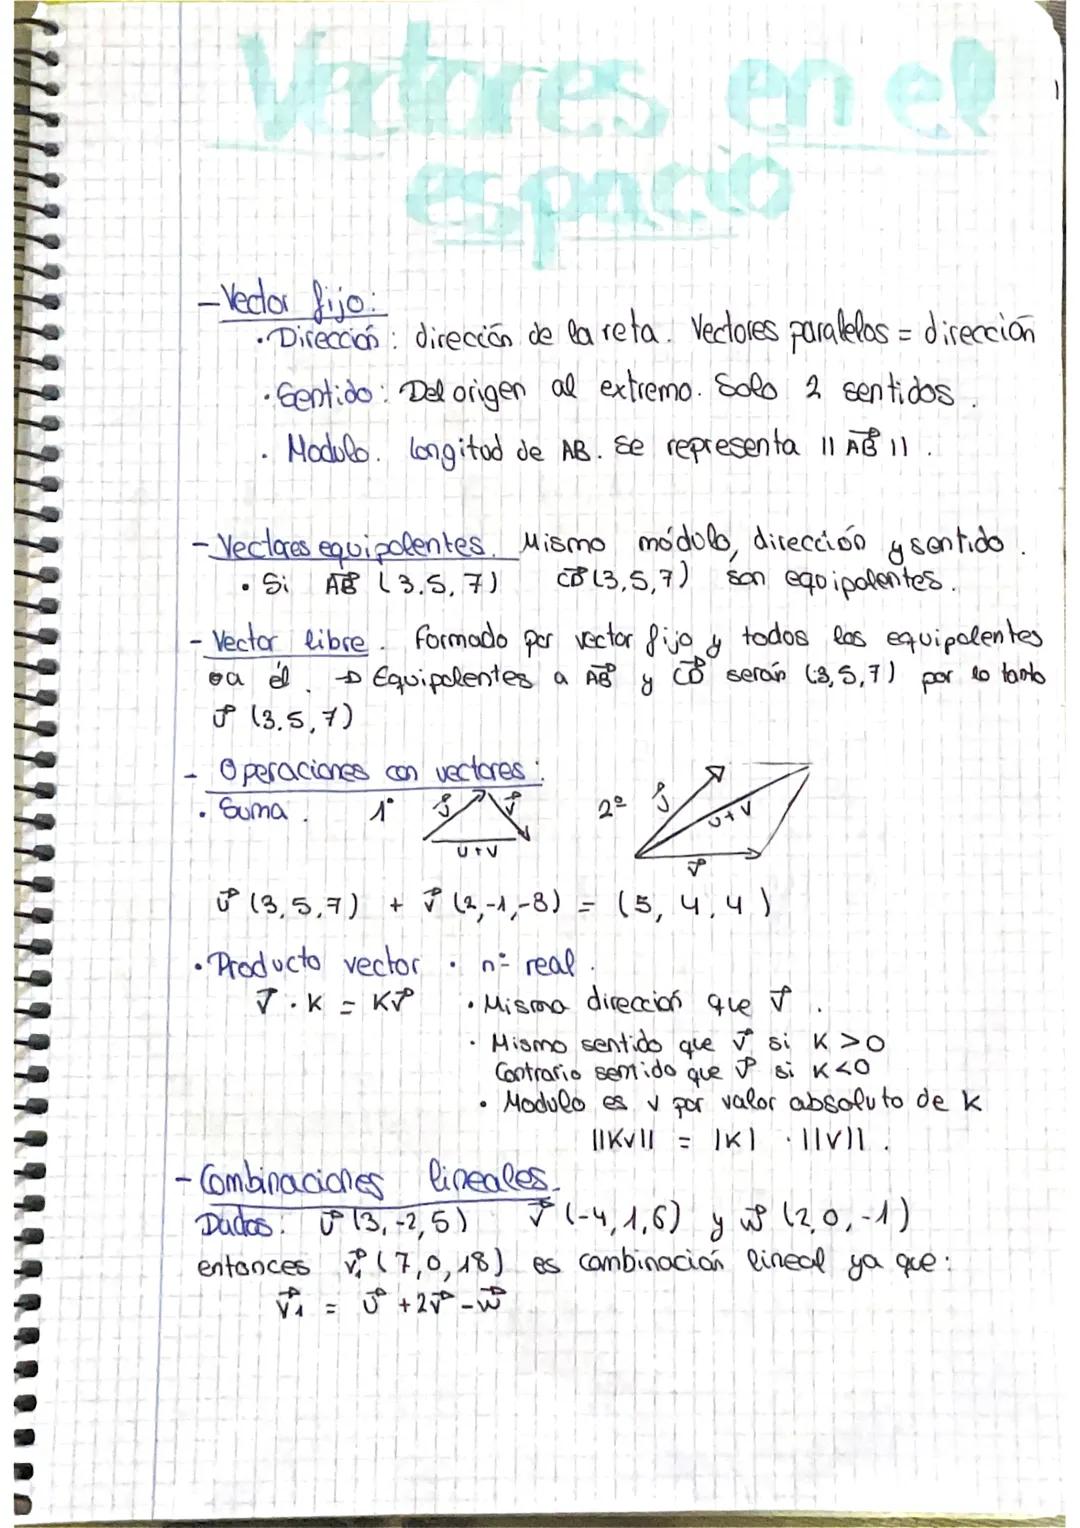 Vectores en el
espacio
1
- Vector fijo:
· Dirección: dirección de la reta. Vectores paralelos = dirección
· Sentido: Del origen al extremo. Solo 2 sentidos.
· Modulo. longitud de AB. Se representa || A⃗B ||.
- Vectores equipolentes. Mismo módulo, dirección y sentido.
· Si A⃗B (3,5,7) C⃗D (3,5,7) son equipolentes.
- Vector libre. Formado por vector fijo y todos los equipolentes
a él. → Equipolentes a A⃗B y C⃗D serán (3,5,7) por lo tanto
u⃗ (3,5,7)
- Operaciones con vectores:
· Suma. 1º u⃗ v⃗ 2º u⃗ u+v
u+v v⃗
u⃗ (3,5,7) + v⃗ (2,-1,-8) = (5, 4, 4)
· Producto vector · nº real.
v⃗ · K = Kv⃗ · Misma dirección que v⃗.
· Mismo sentido que v⃗ si K > 0
Contrario sentido que v⃗ si K < 0
· Modulo es v por valor absoluto de K
||Kv|| = |K| · ||v||.
- Combinaciones lineales.
Dados: u⃗ (3,-2,5) v⃗ (-4,1,6) y w⃗ (2,0,-1)
entonces v⃗₁ (7,0,18) es combinación lineal ya que:
v⃗₁ = u⃗ + 2v⃗ - w⃗